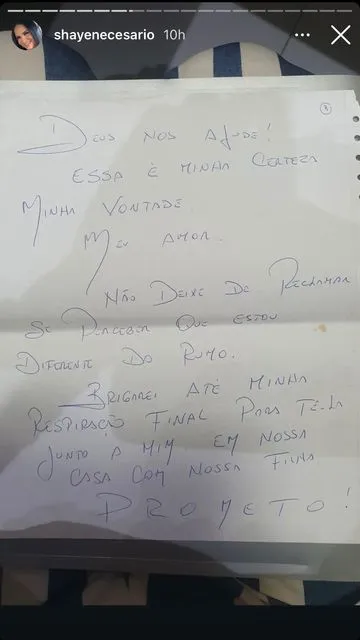 shayenecesario 10h
3
DEUS NOS AJUDE!
ESSA É MINHA CERTEZA
MINHA VONTADE.
MEU AMOR..
NÃO DEIXE DE RECLAMAR
SE PERCEBER QUE ESTOU
DIFERENTE DO RUMO.
BRIGAREI ATÉ MINHA
RESPIRAÇÃO FINAL PARA TÊ-LA
JUNTO A MIM EM NOSSA
CASA COM NOSSA FILHA
PROMETO!